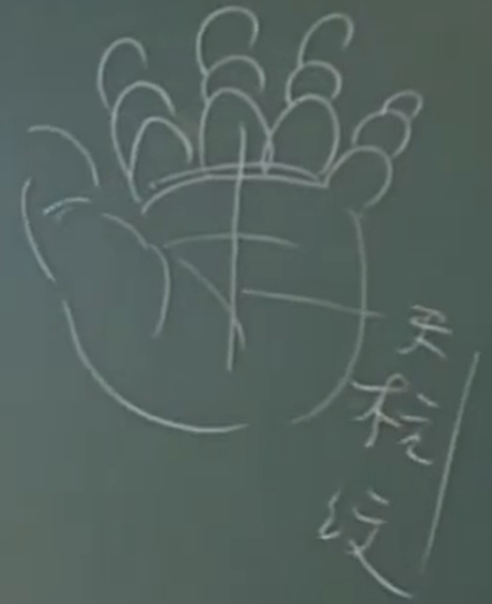 天
柱
纹